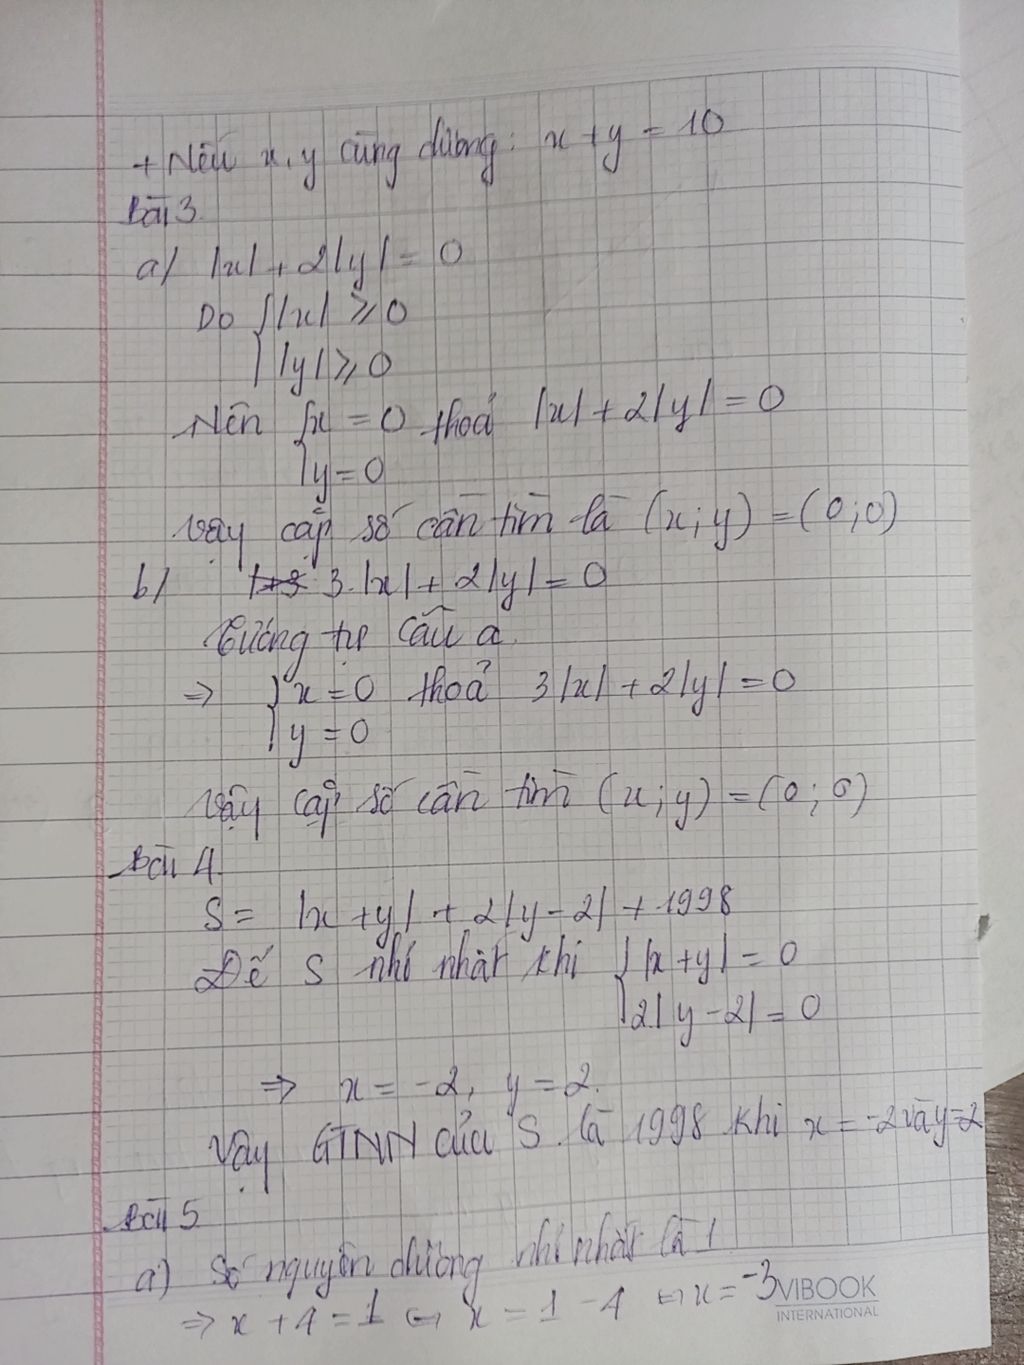 + Nếu x, y cùng dương: x + y = 10
Bài 3
a/ |x| + 2|y| = 0
Do { |x| ≥ 0
{ |y| ≥ 0
Nên { x = 0 thoả |x| + 2|y| = 0
{ y = 0
Vậy cặp số cần tìm là (x; y) = (0; 0)
b/ 3.|x| + 2|y| = 0
Tương tự câu a.
⇒ { x = 0 thoả 3|x| + 2|y| = 0
{ y = 0
Vậy cặp số cần tìm (x; y) = (0; 0)
Bài 4
S = |x + y| + 2|y - 2| + 1998
Để S nhỏ nhất khi { |x + y| = 0
{ 2|y - 2| = 0
⇒ x = -2, y = 2.
Vậy GTNN của S là 1998 khi x = -2 và y = 2
Bài 5
a) Số nguyên dương nhỏ nhất là 1
⇒ x + 4 = 1 ⇔ x = 1 - 4 ⇔ x = -3
VIBOOK
INTERNATIONAL